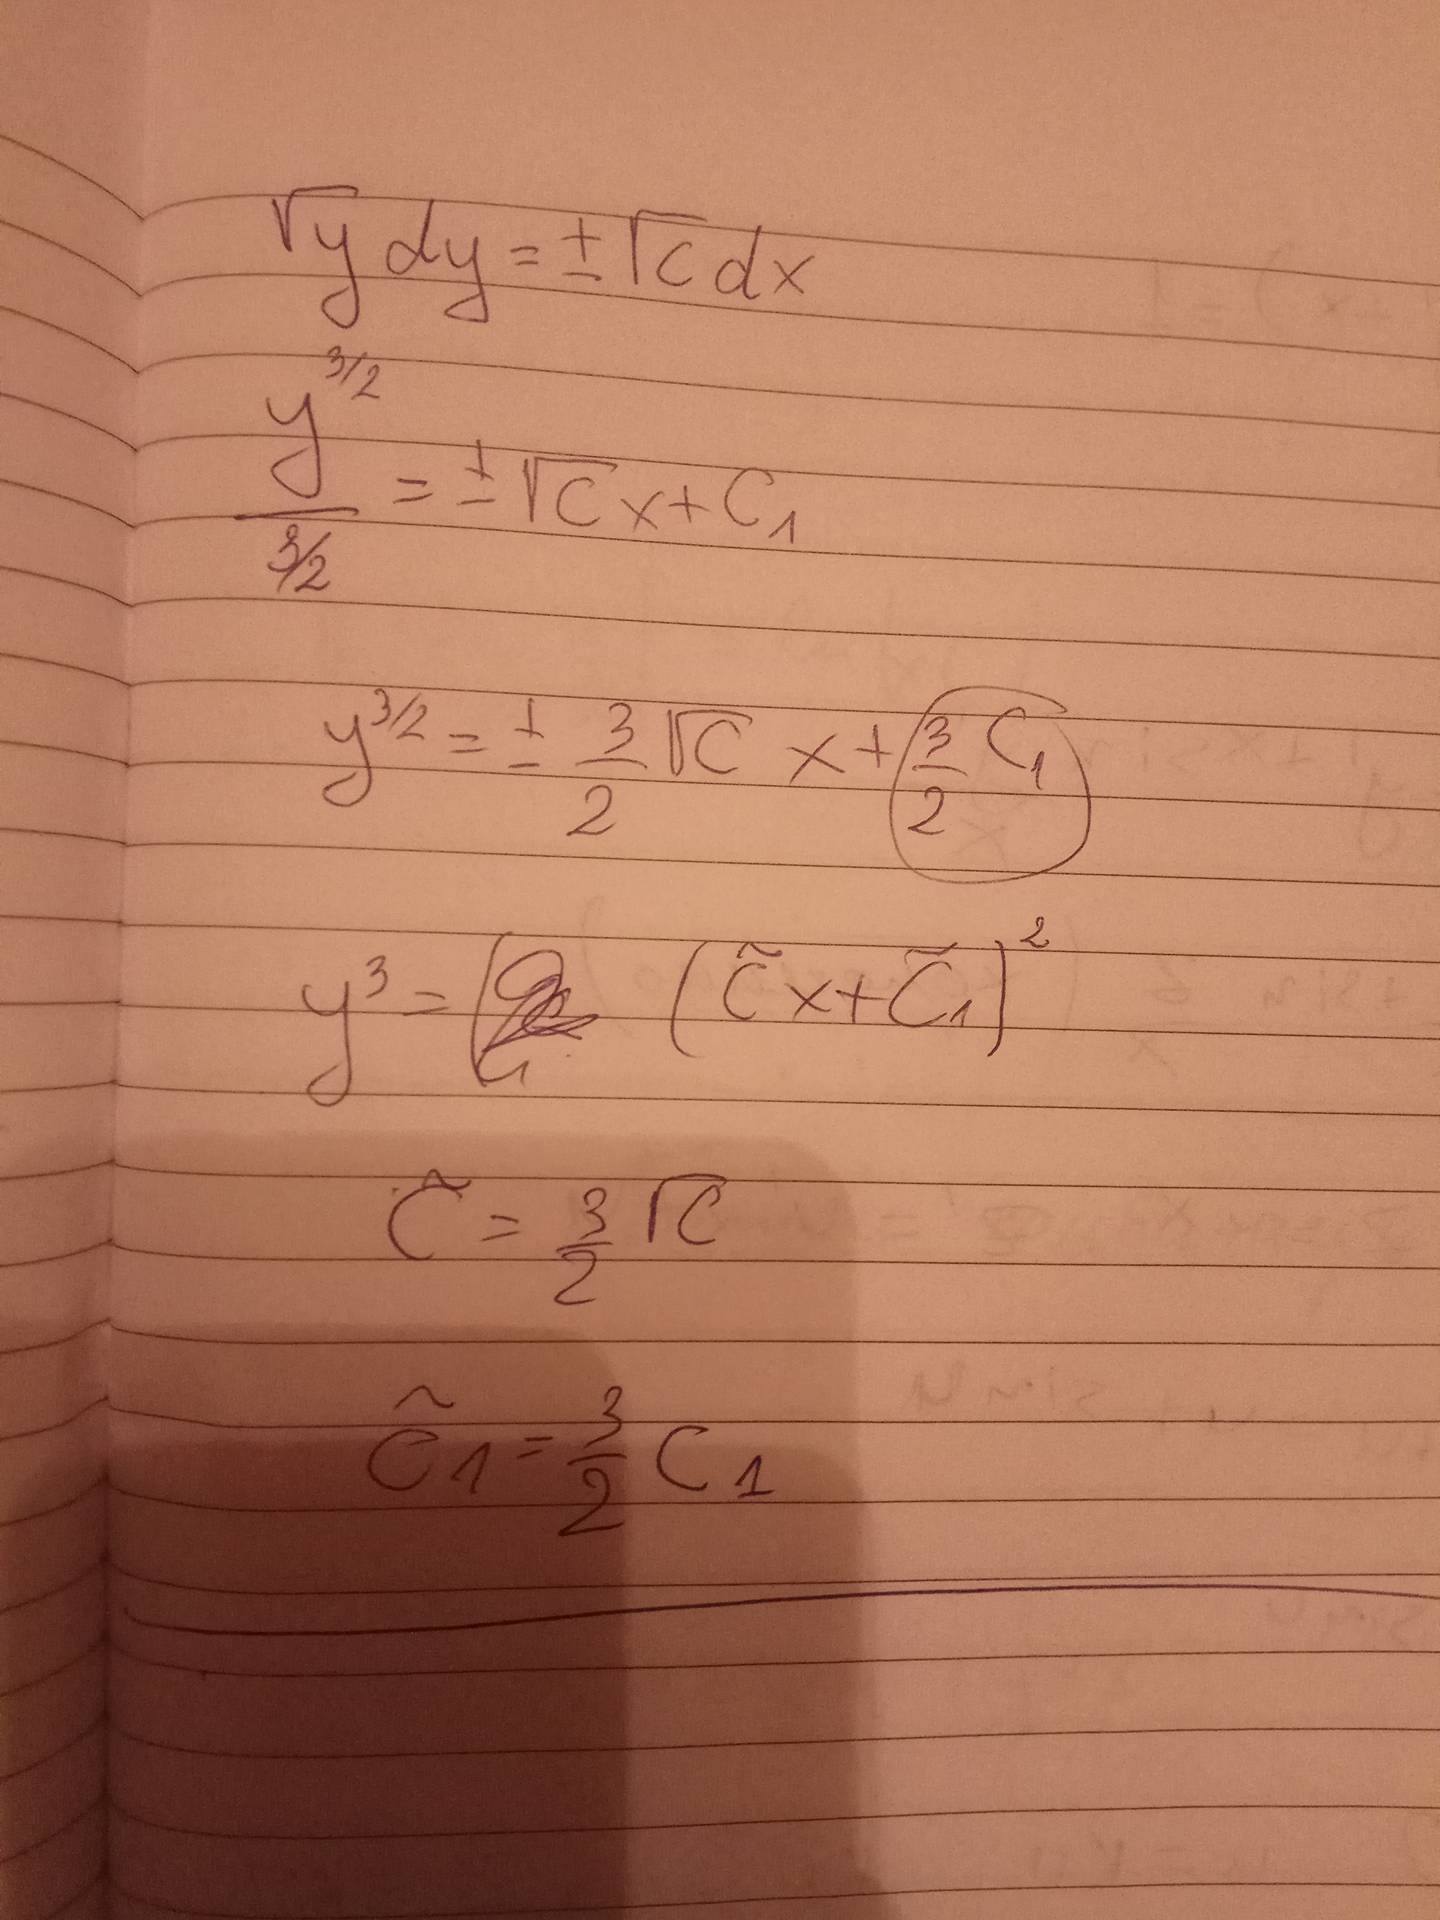 √y dy = ± √C dx
y^3/2 / 3/2 = ± √C x + C₁
y^3/2 = ± 3/2 √C x + 3/2 C₁
y³ = (C̃x + C̃₁)²
C̃ = 3/2 √C
C̃1 = 3/2 C1